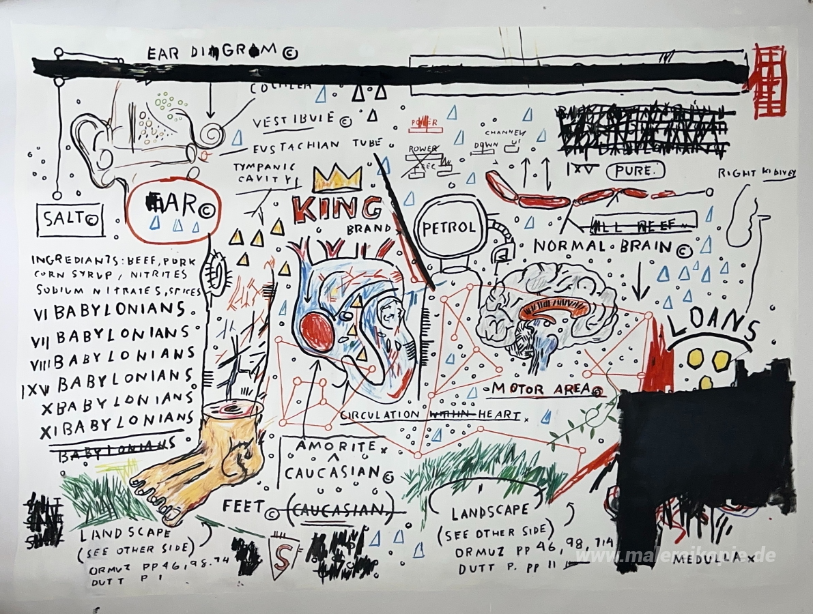 EAR DIAGRAM ©
COCHLEA
VESTIBULE ©
EUSTACHIAN TUBE
TYMPANIC
CAVITY
EAR ©
SALT ©
KING
BRAND
POWER
POWER
CHANNEL
DOWN
PETROL
IXV PURE.
ALL BEEF
NORMAL BRAIN ©
RIGHT KIDNEY
INGREDIANTS: BEEF, PORK
CORN SYRUP, NITRITES
SODIUM NITRATES, SPICES
VI BABYLONIANS.
VII BABYLONIANS.
VIII BABYLONIANS.
IXV BABYLONIANS.
X BABYLONIANS.
XI BABYLONIANS
BABYLONIANS
LOANS
MOTOR AREA ©
CIRCULATION WITHIN HEART.
AMORITE x
CAUCASIAN ©
FEET © (CAUCASIAN)
LANDSCAPE
(SEE OTHER SIDE)
ORMUZ PP 46, 98. 74
DUTT P 1
S
LANDSCAPE
(SEE OTHER SIDE)
ORMUZ PP 46, 98, 714
DUTT P. PP 11
MEDULLA x
www.malermikonie.de